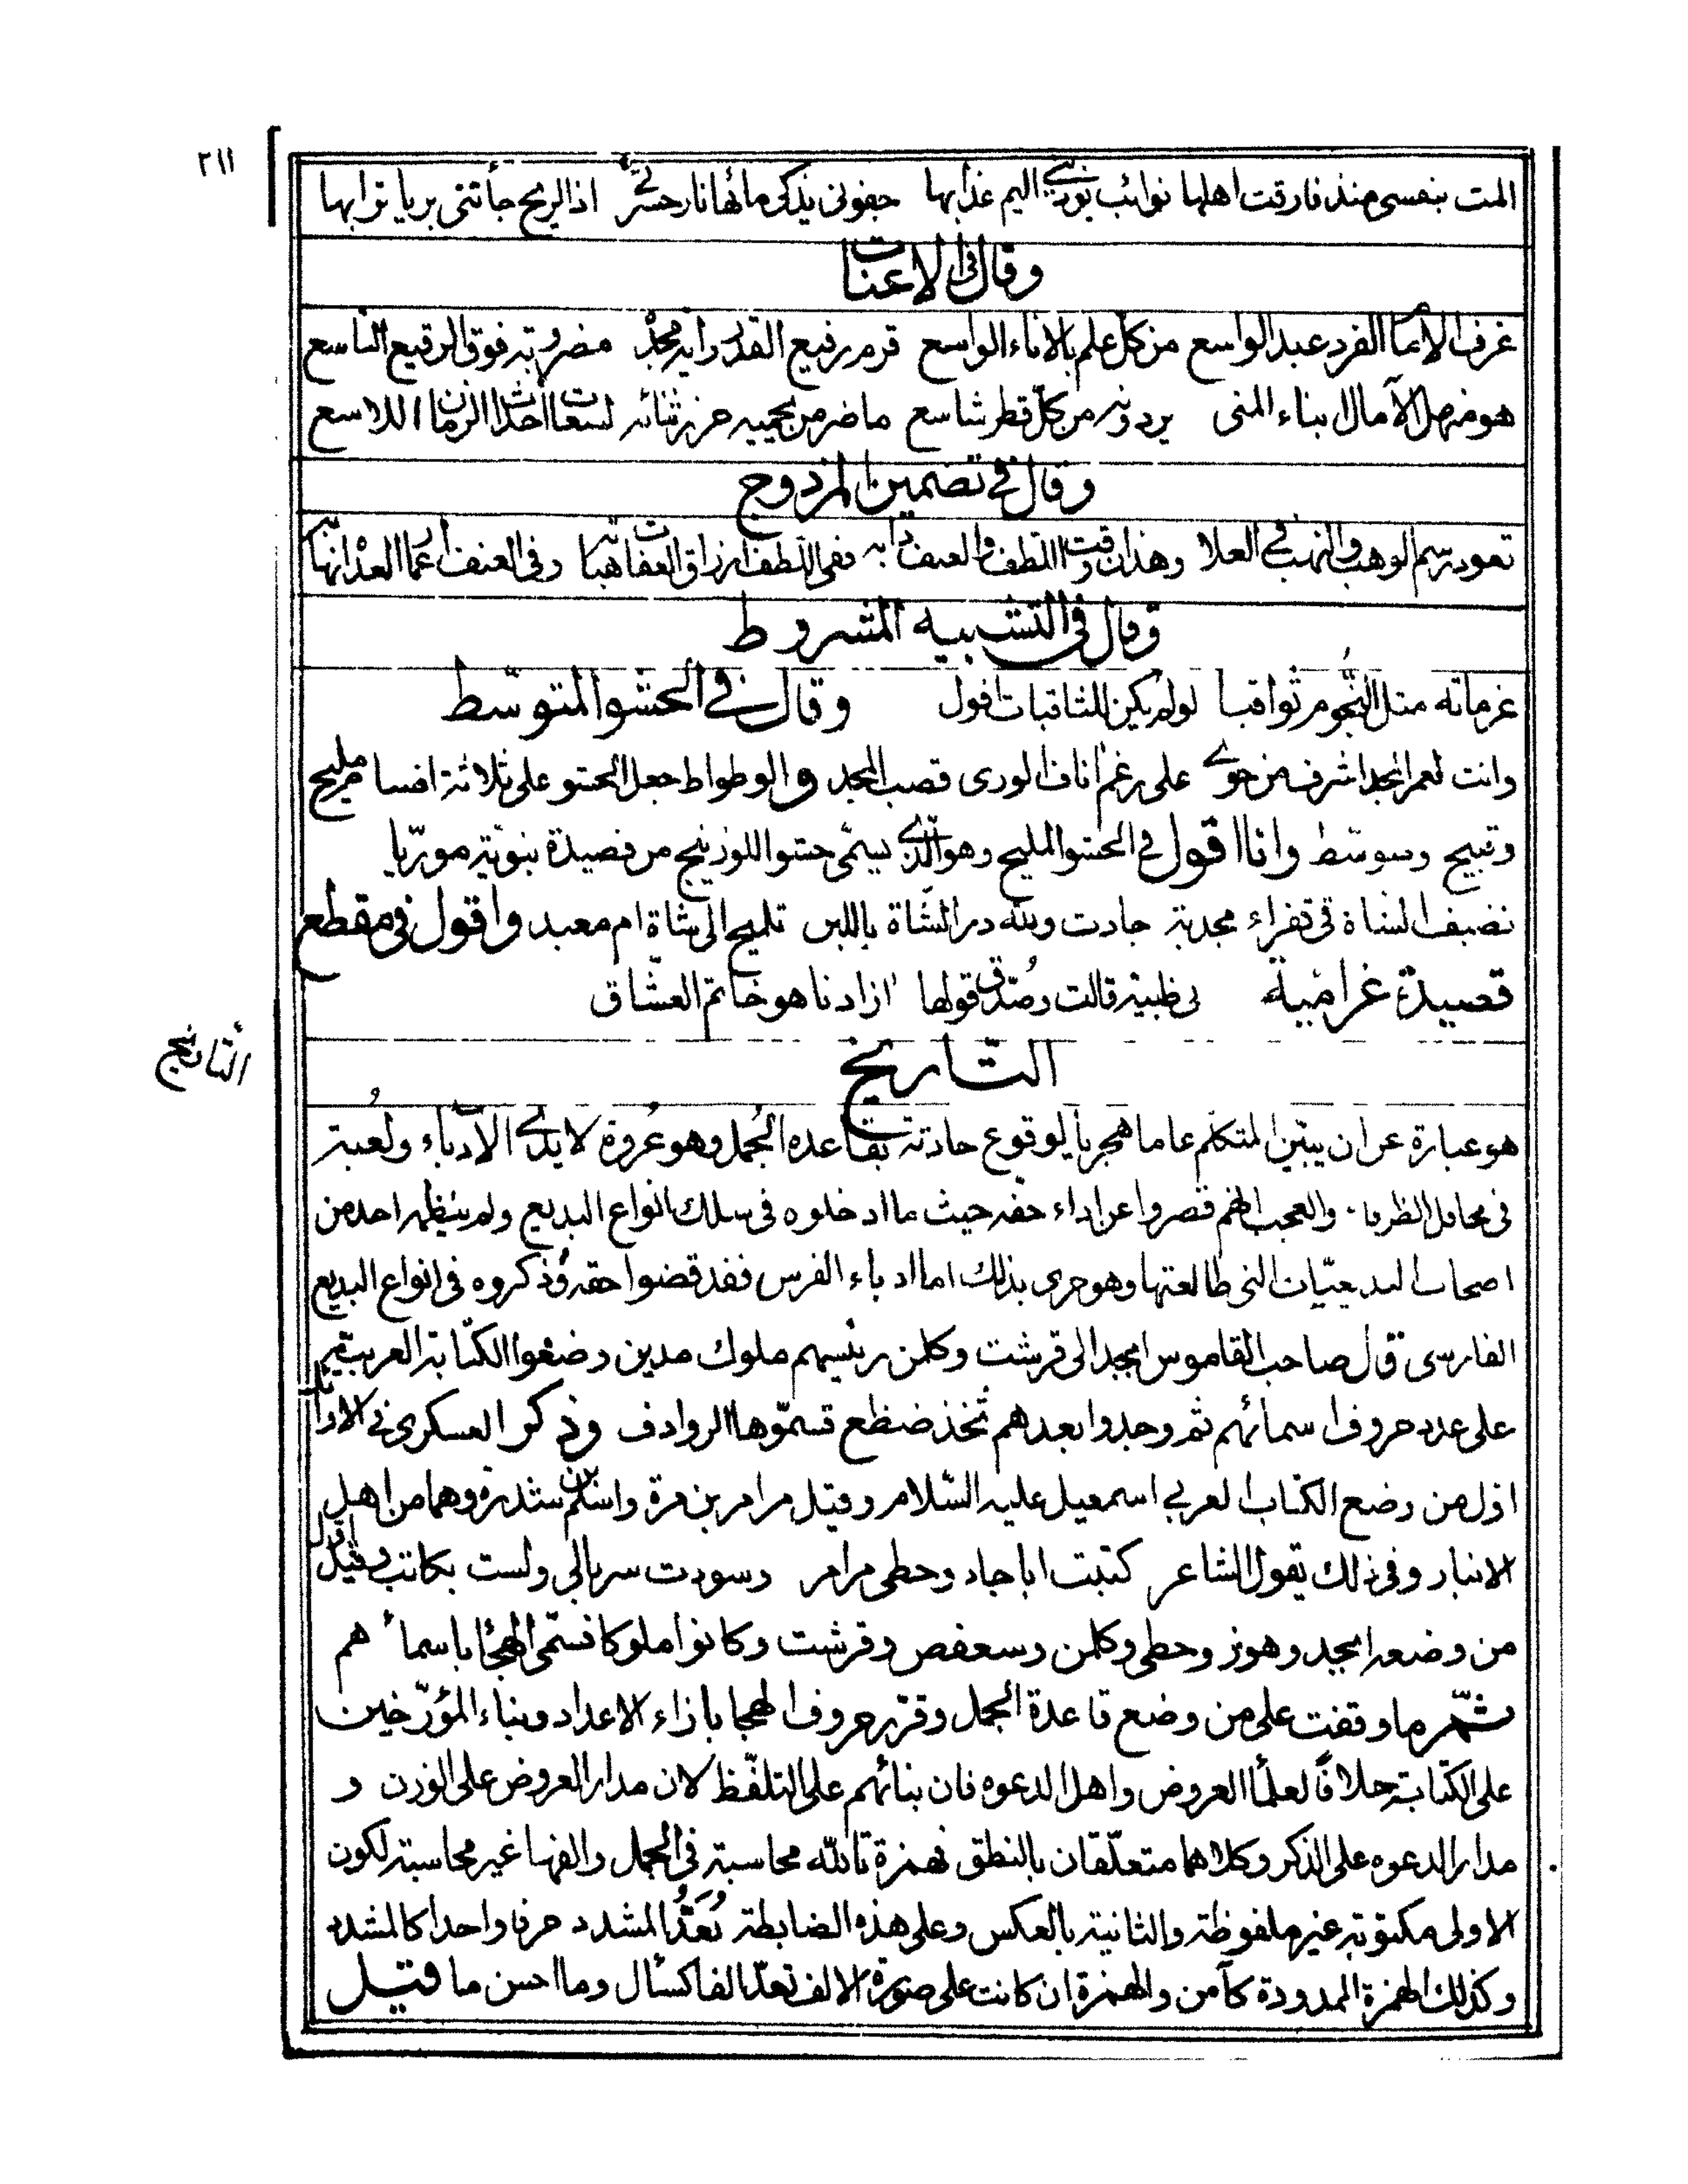 ٢١١
المت بنفسي منذ فارقت اهلها نوائب يودي اليم عذابها جفوني يذكي مائها نار حسرتي اذا الريح جأتني بريا ترابها
وقال في الاعنات
غرف الأئمة الفرد عبد الواسع من كل علم بالاناء الواسع قرم رفيع القدر راية مجده مضروبة فوق الرقيع التاسع
هو منهل الآمال ابناء المنى يردونه من كل قطر شاسع ما ضر من يحميه حرز ثنائه لسعات احداث الزمان اللاسع
وقال في تضمين المزدوج
تعود رسم الوهب والنهب في العلا وهذان وقت اللطف والعنف دأبه ففي اللطف ارزاق العفاة هباته وفي العنف اعمار العداة نهابه
وقال في التشبيه المشروط
عزماته مثل النجوم ثواقبا لو لم يكن للثاقبات افول وقال في الحشو المتوسط
وانت لعمر المجد اشرف من حوى على رغم اناف الورى قصب المجد والوطواط جعل الحشو على ثلاثة اقسام مليح
وقبيح ومتوسط وانا اقول في الحشو المليح وهو الذي يسمّى حشو اللوزينج من قصيدة نبوية مورّيا
تضيف لسناة في قفراء مجدبة جادت ولله در الشاة باللبن تلميح الى شاة ام معبد واقول في مقطع
قصيدة غرامية لي ظبية قالت وصُدّق قولها ازادنا هو خاتم العشّاق
التّاريخ
التاريخ
هو عبارة عن ان يبيّن المتكلم عاما هجريا لوقوع حادثة بقاعدة الجُمل وهو عُروة لايدي الأدباء ولُعبة
في محافل الظرفا والعجب انهم قصروا عن اداء حقه حيث ما ادخلوه في سلك انواع البديع ولم ينظمه احد من
اصحاب البديعيّات التي طالعتها وهو حرى بذلك اما ادباء الفرس فقد قضوا حقه وذكروه في انواع البديع
الفارسى قال صاحب القاموس ابجد الى قرشت وكلمن رئيسهم ملوك مدين وضعوا الكتابة العربية
على عدد حروف اسمائهم ثم وجدوا بعدهم ثخذ ضظغ فسمّوها الروادف وذكر العسكرى في الاوائل
اول من وضع الكتاب العربي اسمعيل عليه السّلام وقيل مرامر بن مرة واسلم بن سدرة وهما من اهل
الانبار وفي ذلك يقول الشاعر كتبت اباجاد وحطى مرامر وسودت سربالي ولست بكاتب وقيل اول
من وضعه ابجد وهوز وحطي وكلمن وسعفص وقرشت وكانوا ملوكا فسمّى الهجا باسمائهم
ثمّ ما وقفت على من وضع قاعدة الجمل وقرر حروف الهجا بازاء الاعداد وبناء المؤرّخين
على الكتابة خلافًا لعلمأ العروض واهل الدعوه فان بنائهم على التلفّظ لان مدار العروض على الوزن و
مدار الدعوه على الذكر وكلاهما متعلّقان بالنطق فهمزة تالله محاسبة في الجمل والفها غير محاسبة لكون
الاولى مكتوبة غير ملفوظة والثانية بالعكس وعلى هذه الضابطة يُعَدُّ المشدد حرفا واحدا كالمشدد
وكذلك الهمزة الممدودة كآمن والهمزة ان كانت على صورة الالف تعدّ الفا كسأل وما احسن ما قيل